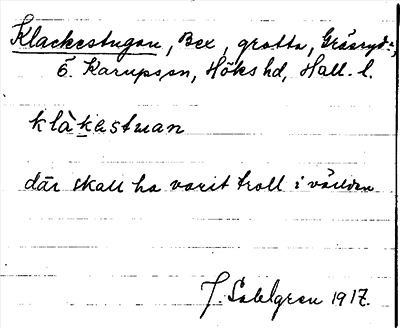 Klackestugan, Bex, grotta, Gråsryd?,
Ö. Karups sn, Höks hd, Hall. l.
klàkestuan
där skall ha varit troll i världen
J. Sahlgren 1917.